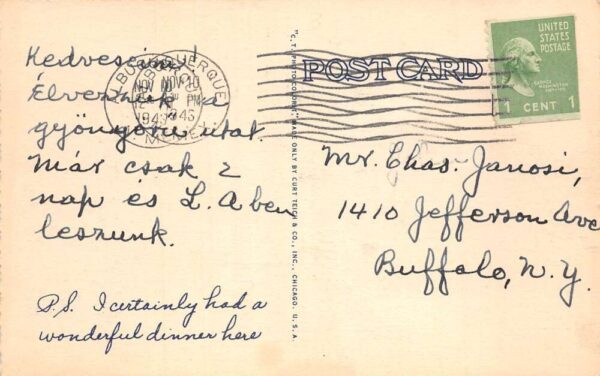 Kedveseim!
Élvezzük a
gyönyörü utat.
Már csak 2
nap és L. A ben
leszunk.
P.S. I certainly had a
wonderful dinner here
ALBUQUERQUE
NOV
PM
1946
N. MEX.
POST CARD
UNITED
STATES
POSTAGE
GEORGE
WASHINGTON
1 CENT 1
Mr. Chas. Janosi,
1410 Jefferson Ave
Buffalo, N. Y.
MADE ONLY BY CURT TEICH & CO., INC., CHICAGO, U.S.A